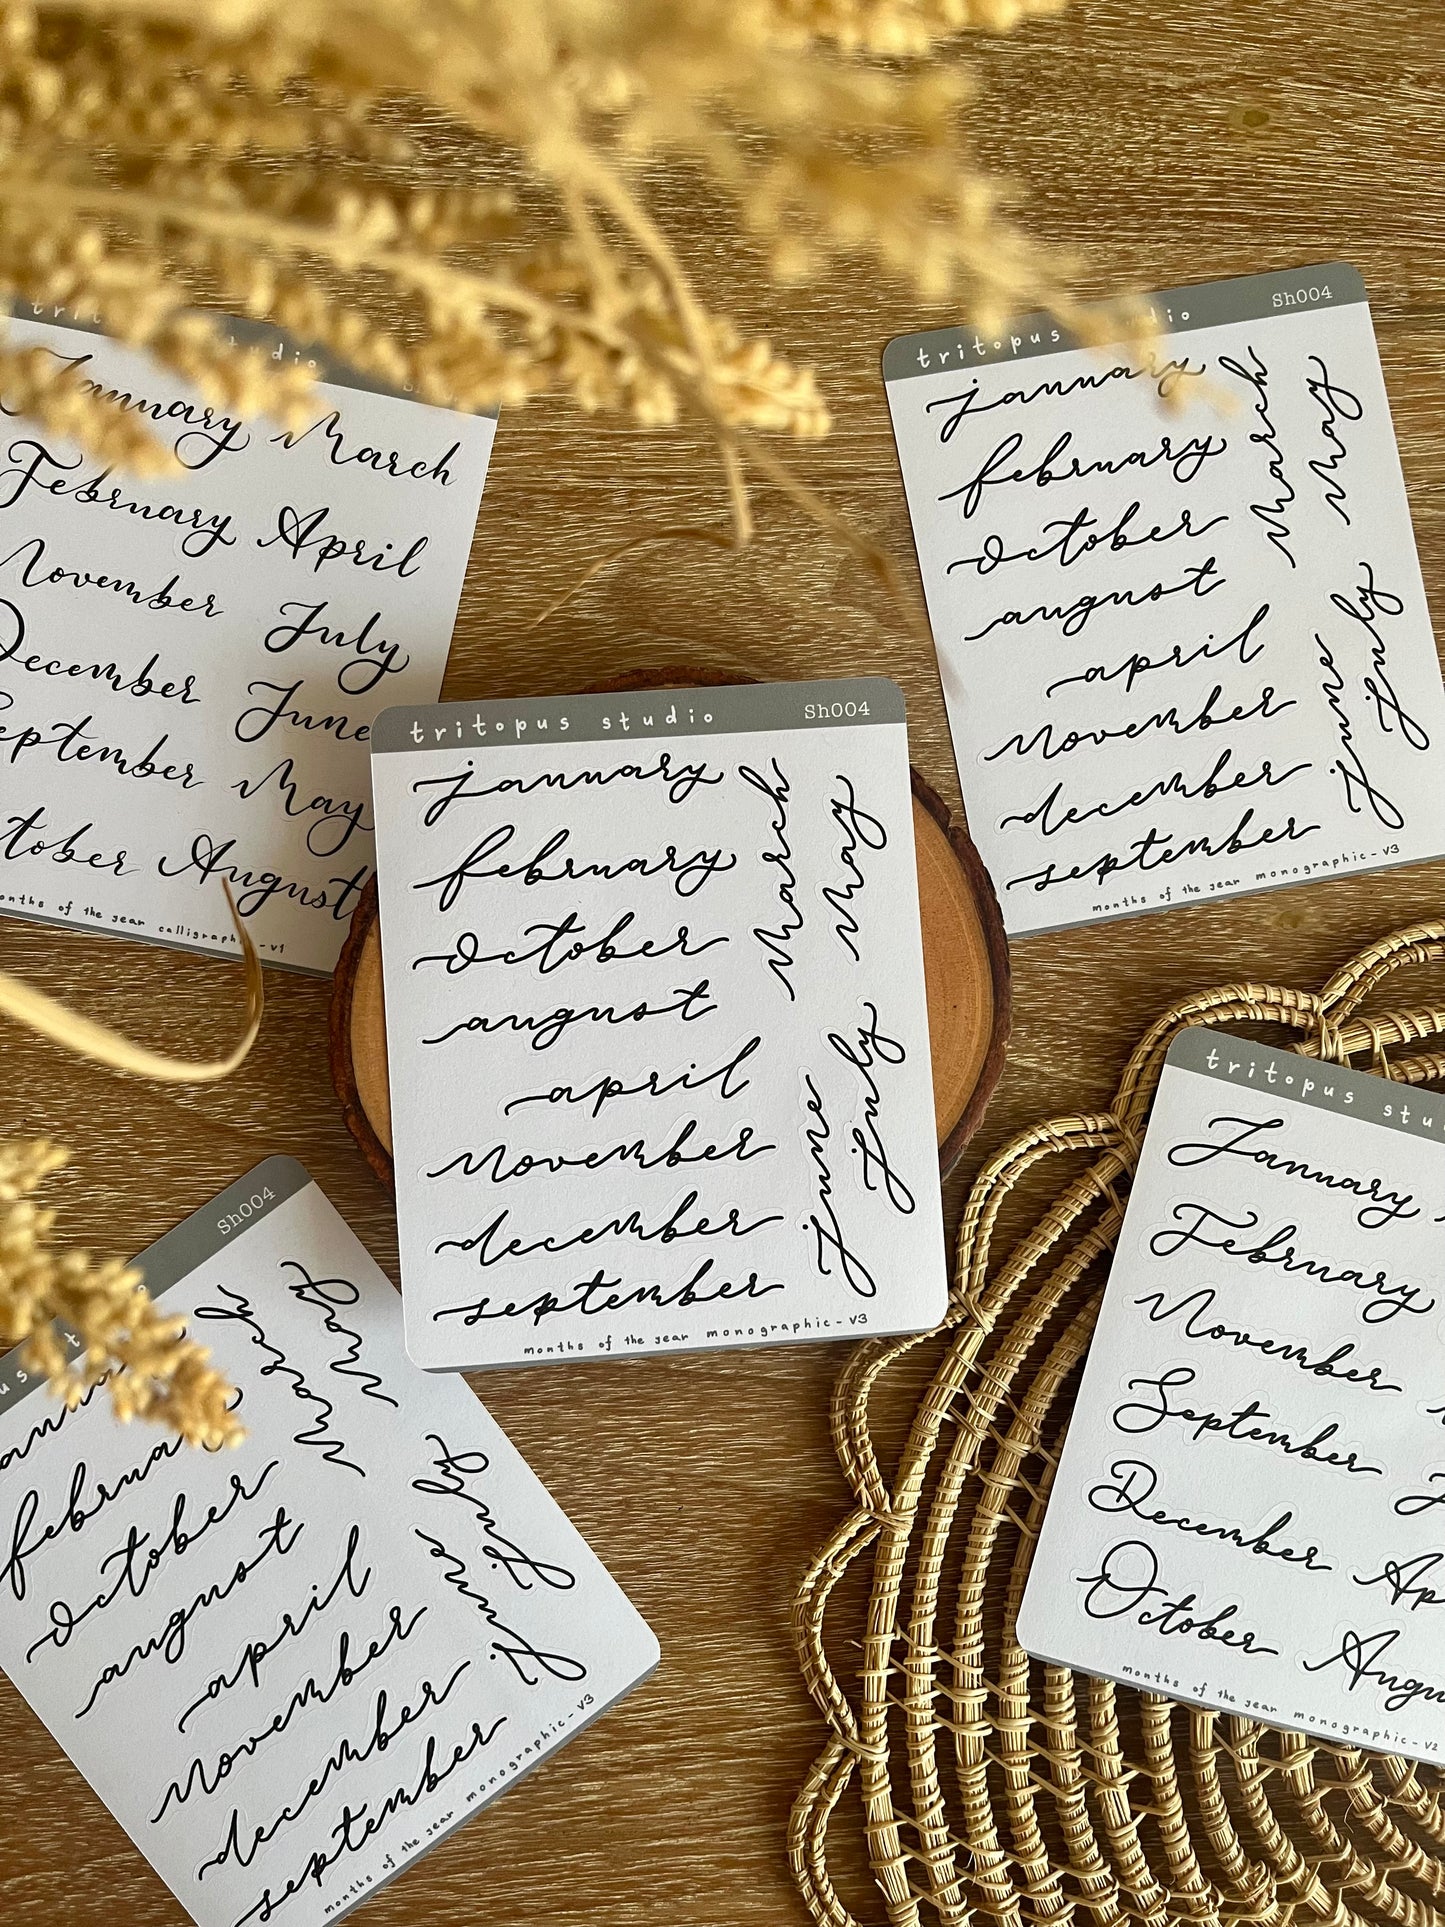 tritopus studio
January March
February April
November July
December June
September May
October August
months of the year calligraphic-v1
tritopus studio Sh004
january
february
october
august
april
november
december
september
March
May
june
july
months of the year monographic-v3
tritopus studio Sh004
january
february
october
august
april
november
december
september
March
May
june
july
months of the year monographic-v3
Sh004
february
october
august
april
november
december
september
March
May
june
july
months of the year monographic-v3
tritopus
January
February
November
September
December
October
months of the year monographic-v2